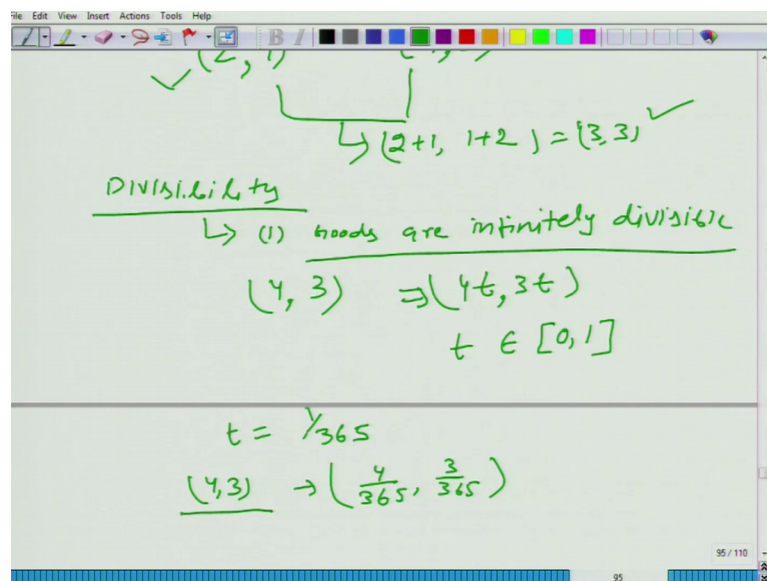 File Edit View Insert Actions Tools Help
(2, 1)
↳ (2+1, 1+2) = (3,3)
Divisibility
↳ (1) Goods are infinitely divisible
(4, 3) ⇒ (4t, 3t)
t ∈ [0,1]
t = 1/365
(4,3) → (4/365, 3/365)
95 / 110
95